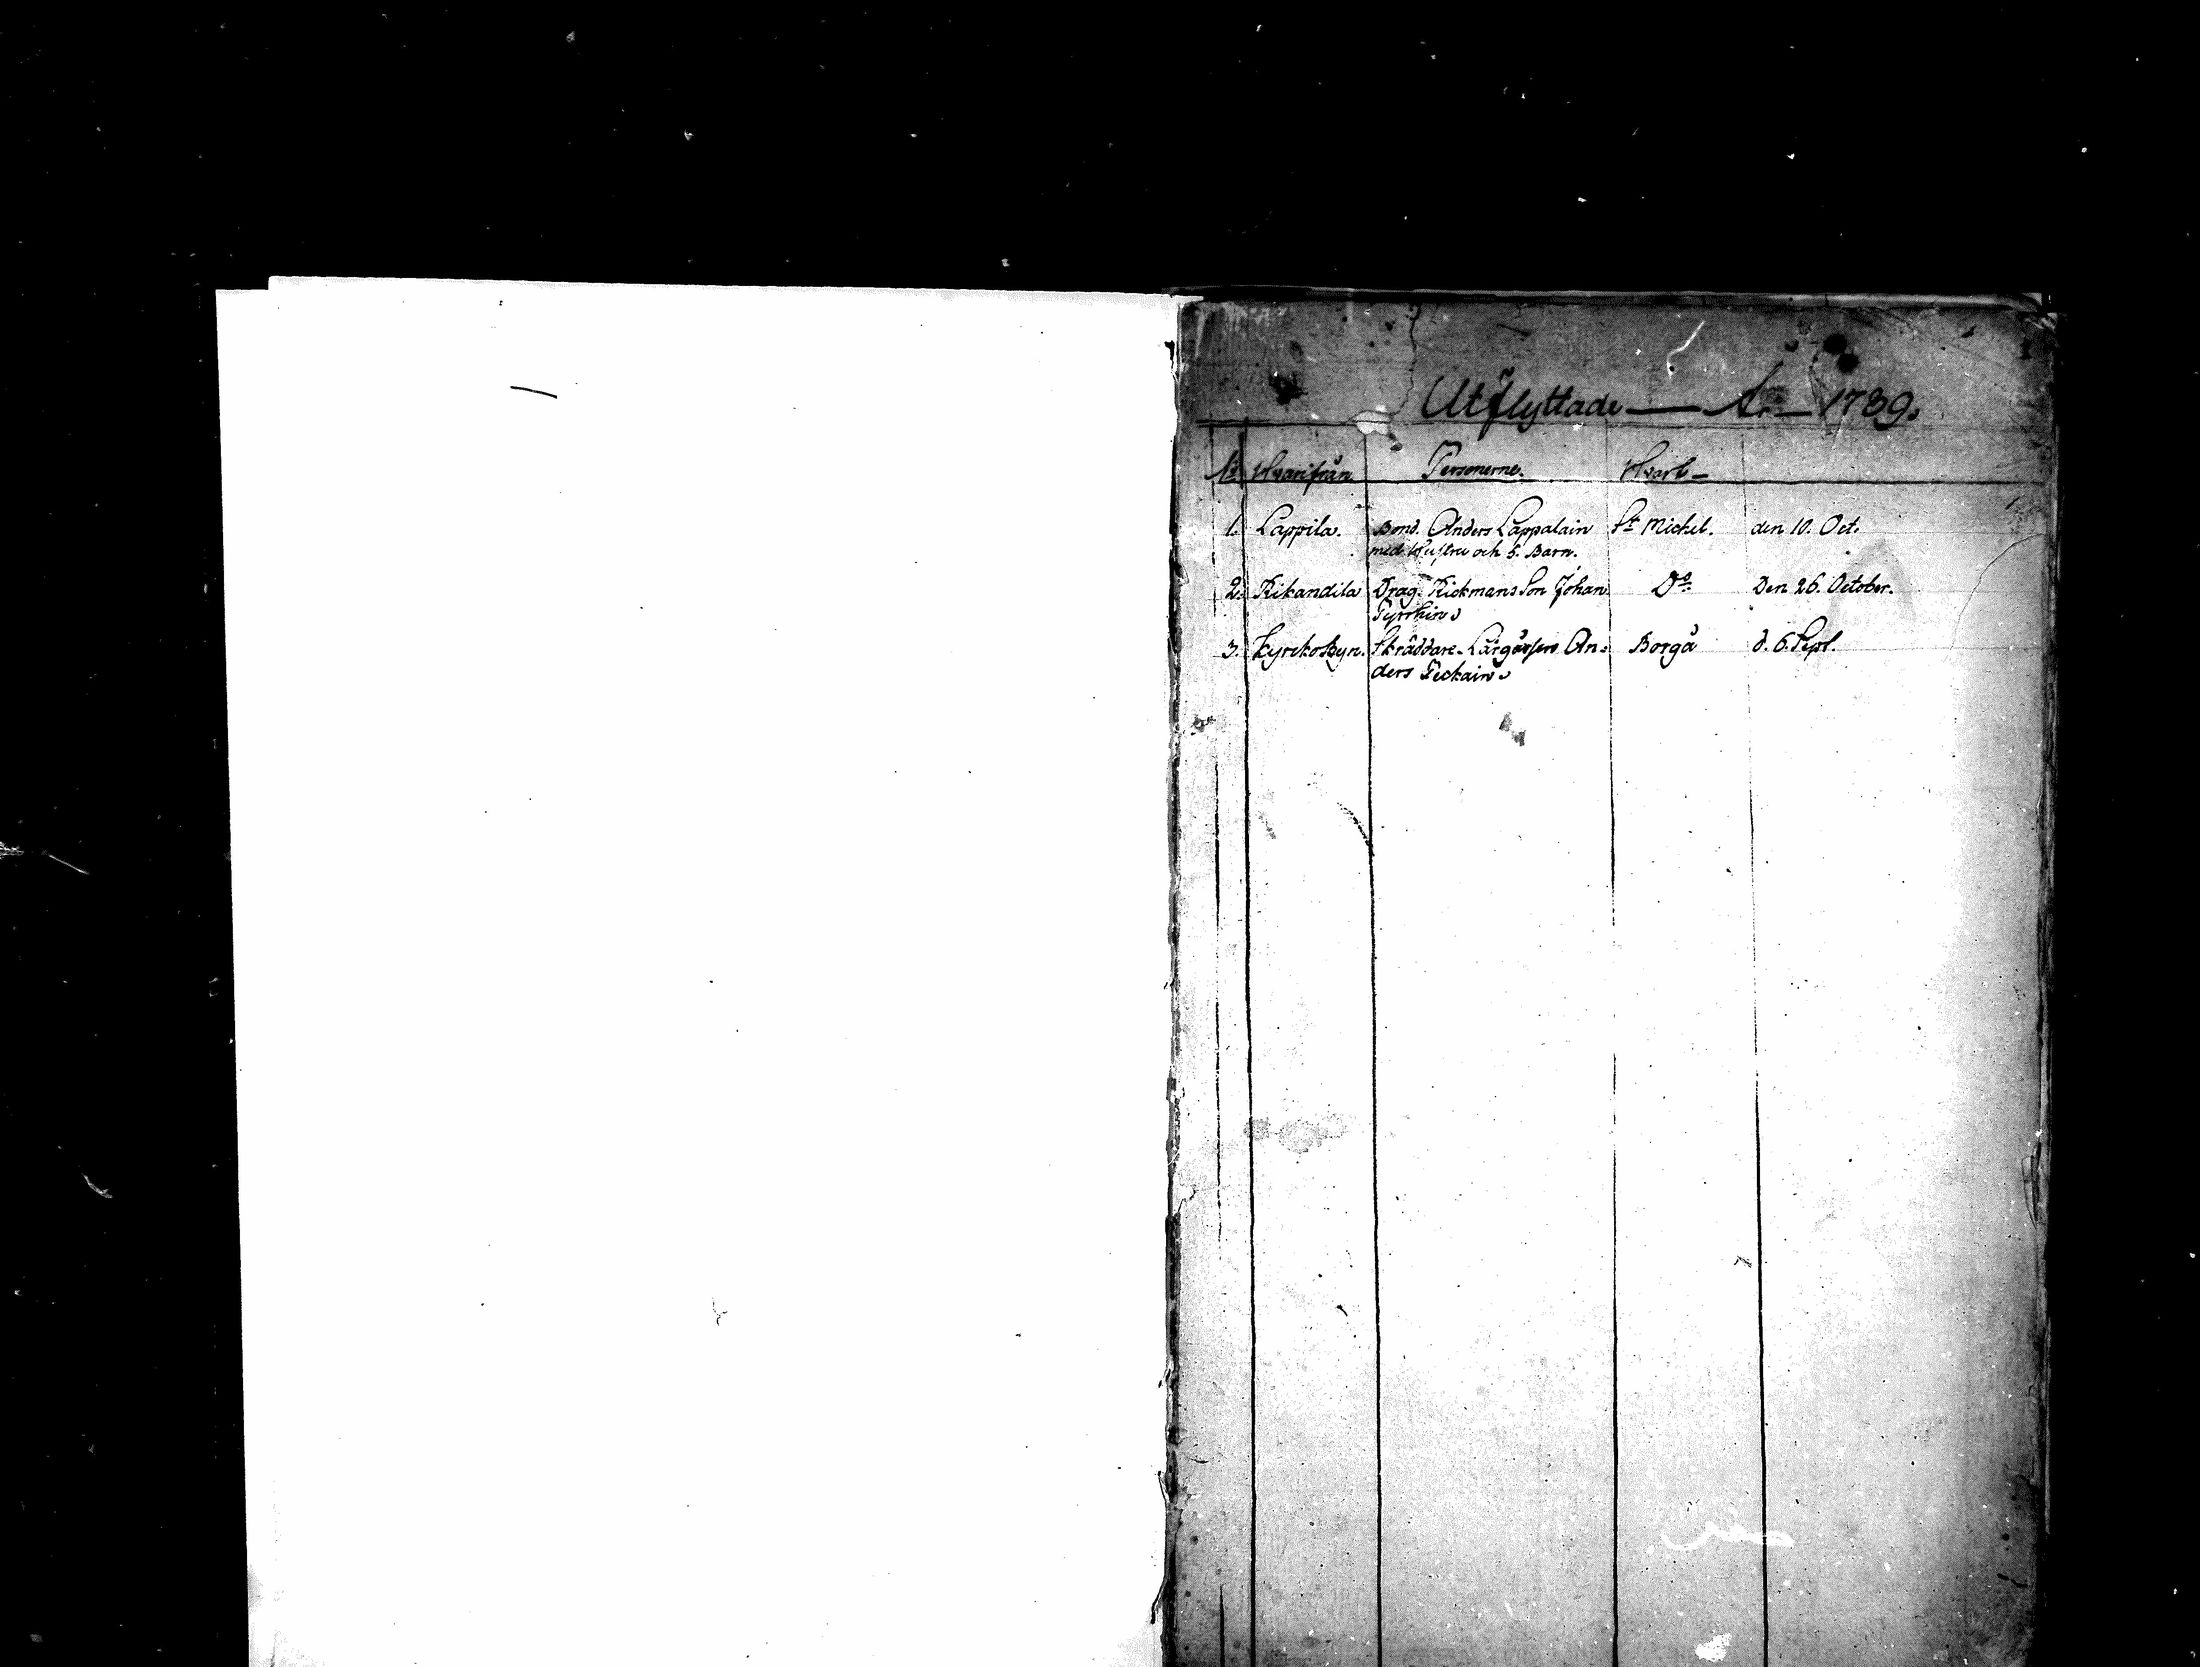 Utflyttade — År — 1789.
No Hvarifrån Personerne. Hvart —
1. Lappila. Bond. Anders Lappalain St Michel. den 10. Oct.
med Hustru och 5. Barn.
2. Rikandila Drag. Rickmans Son Johan Do Den 26. October.
Pyrrhin
3. Kyrckobyn. Skräddare-Lärgåssen An= Borgå d. 6. Sept.
ders Peckain